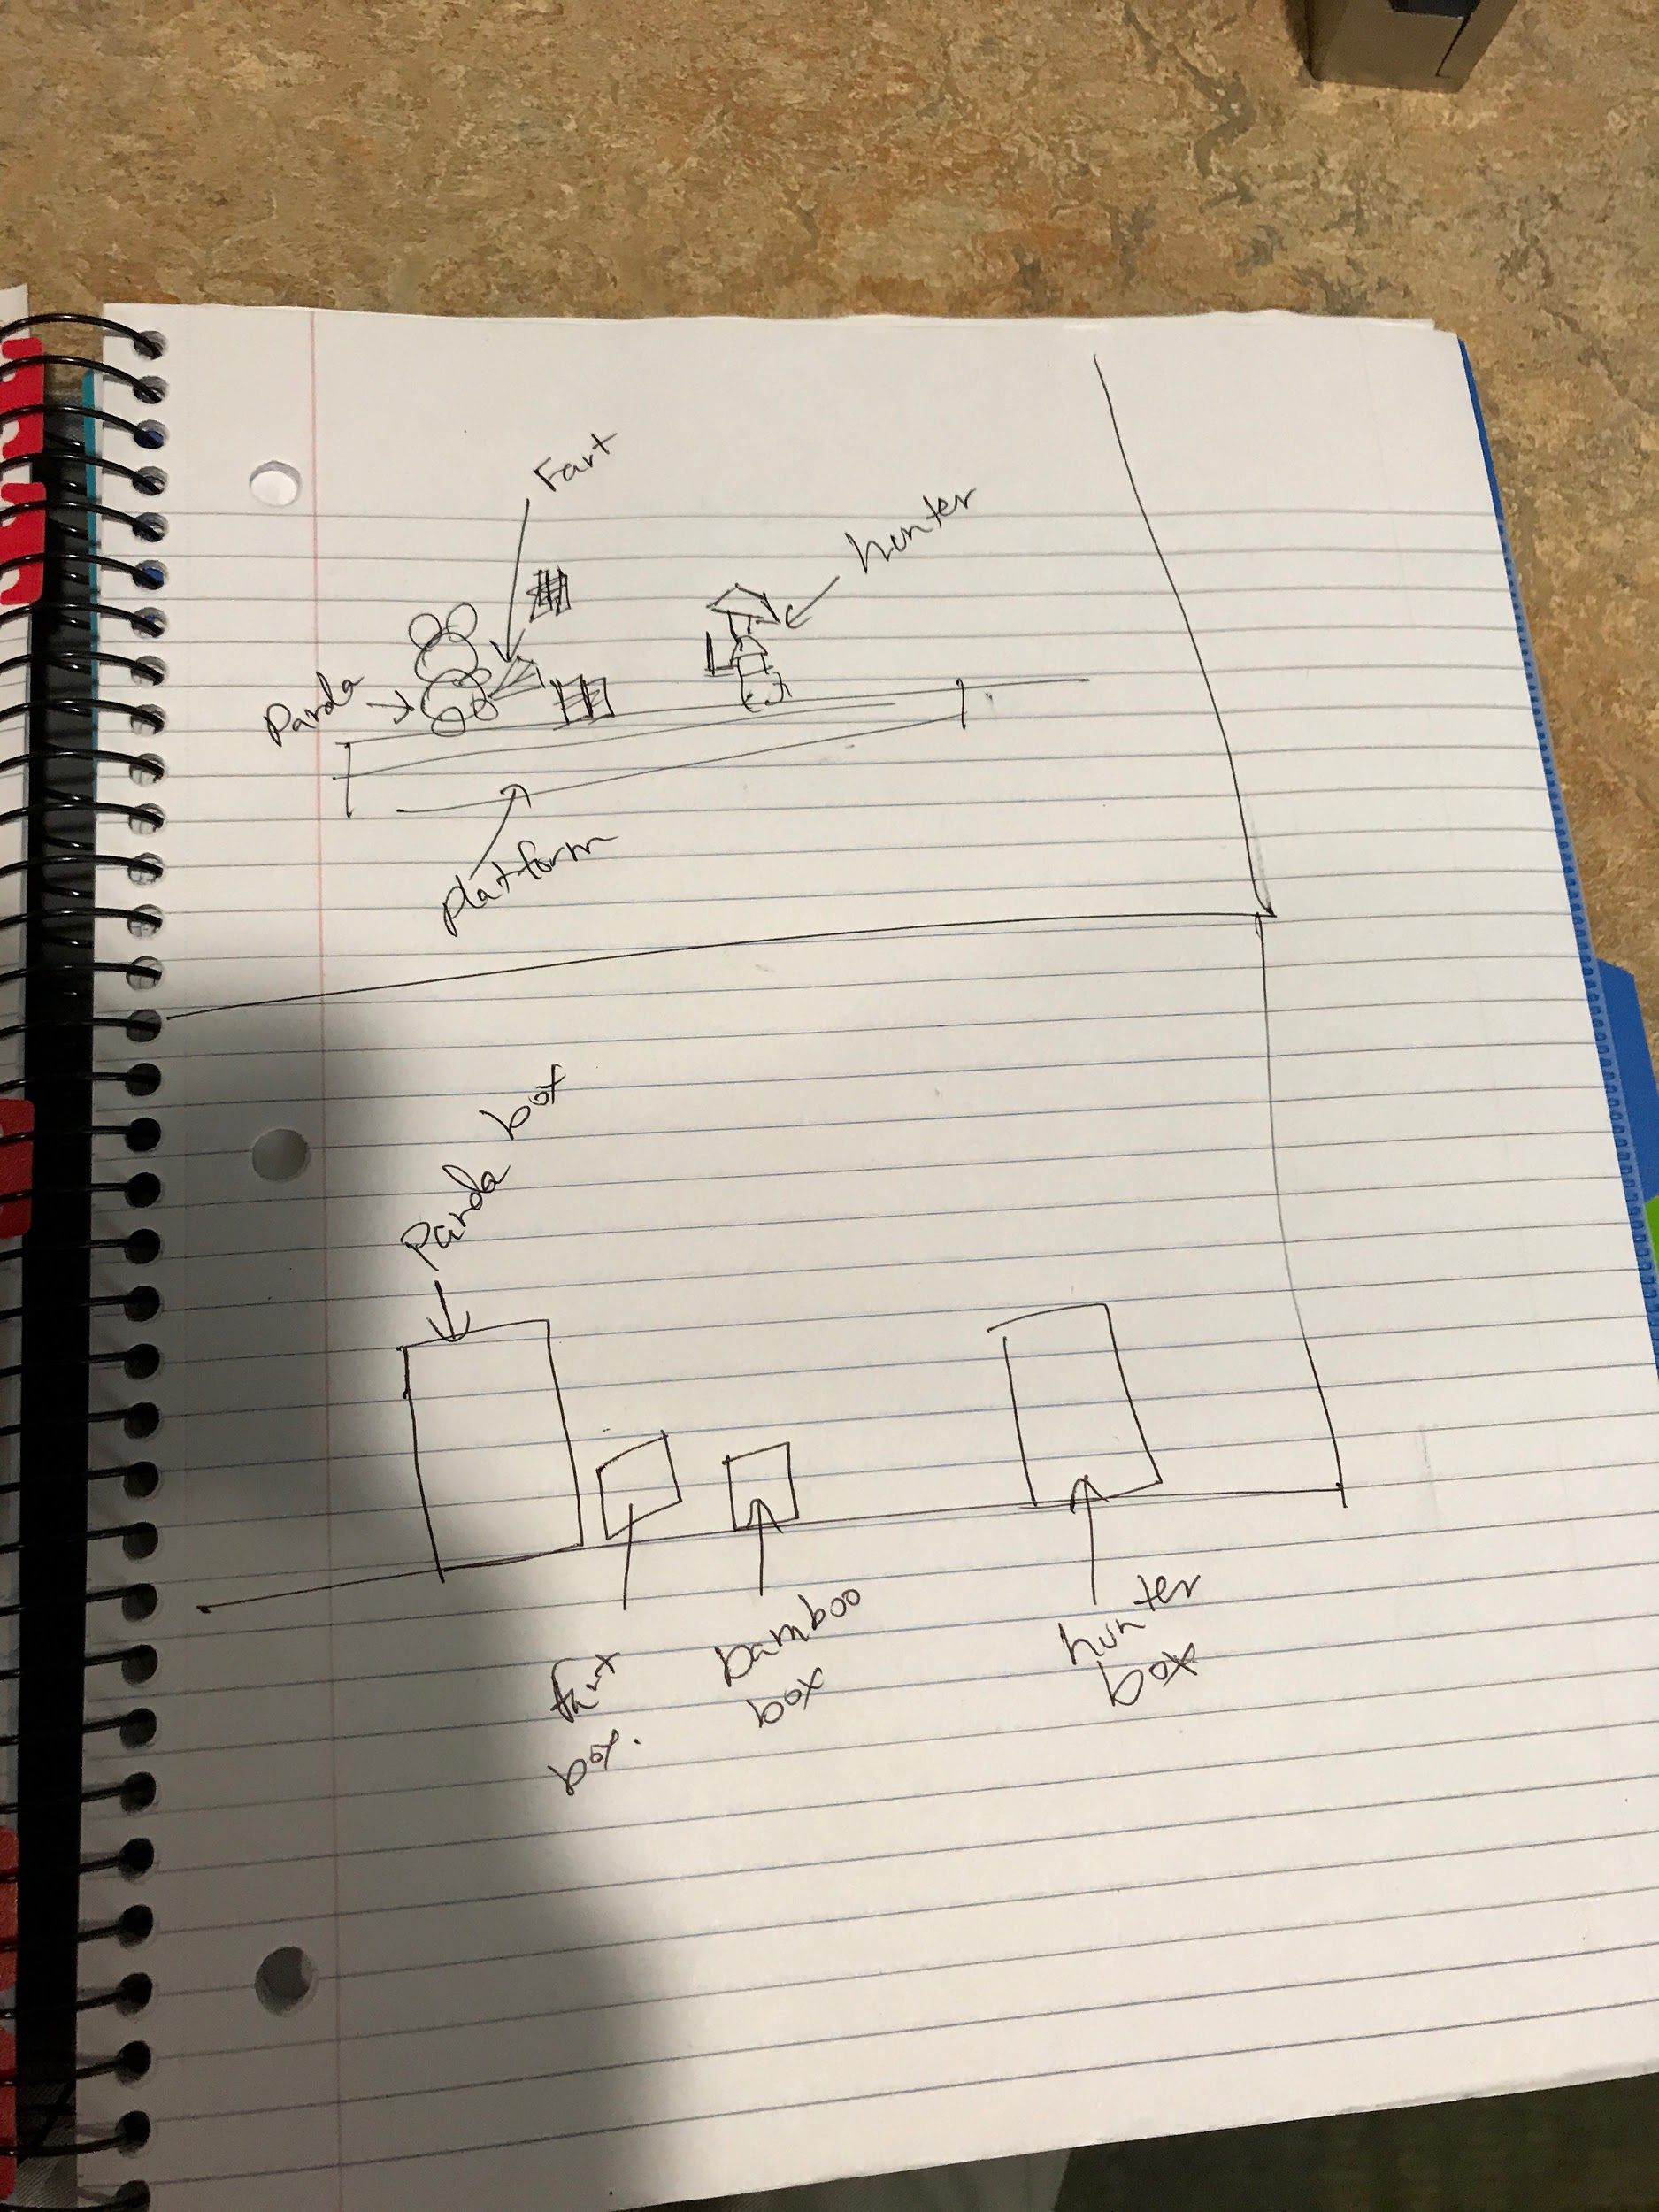 Fart
hunter
Panda
platform
Panda box
fart
box.
bamboo
box
hunter
box